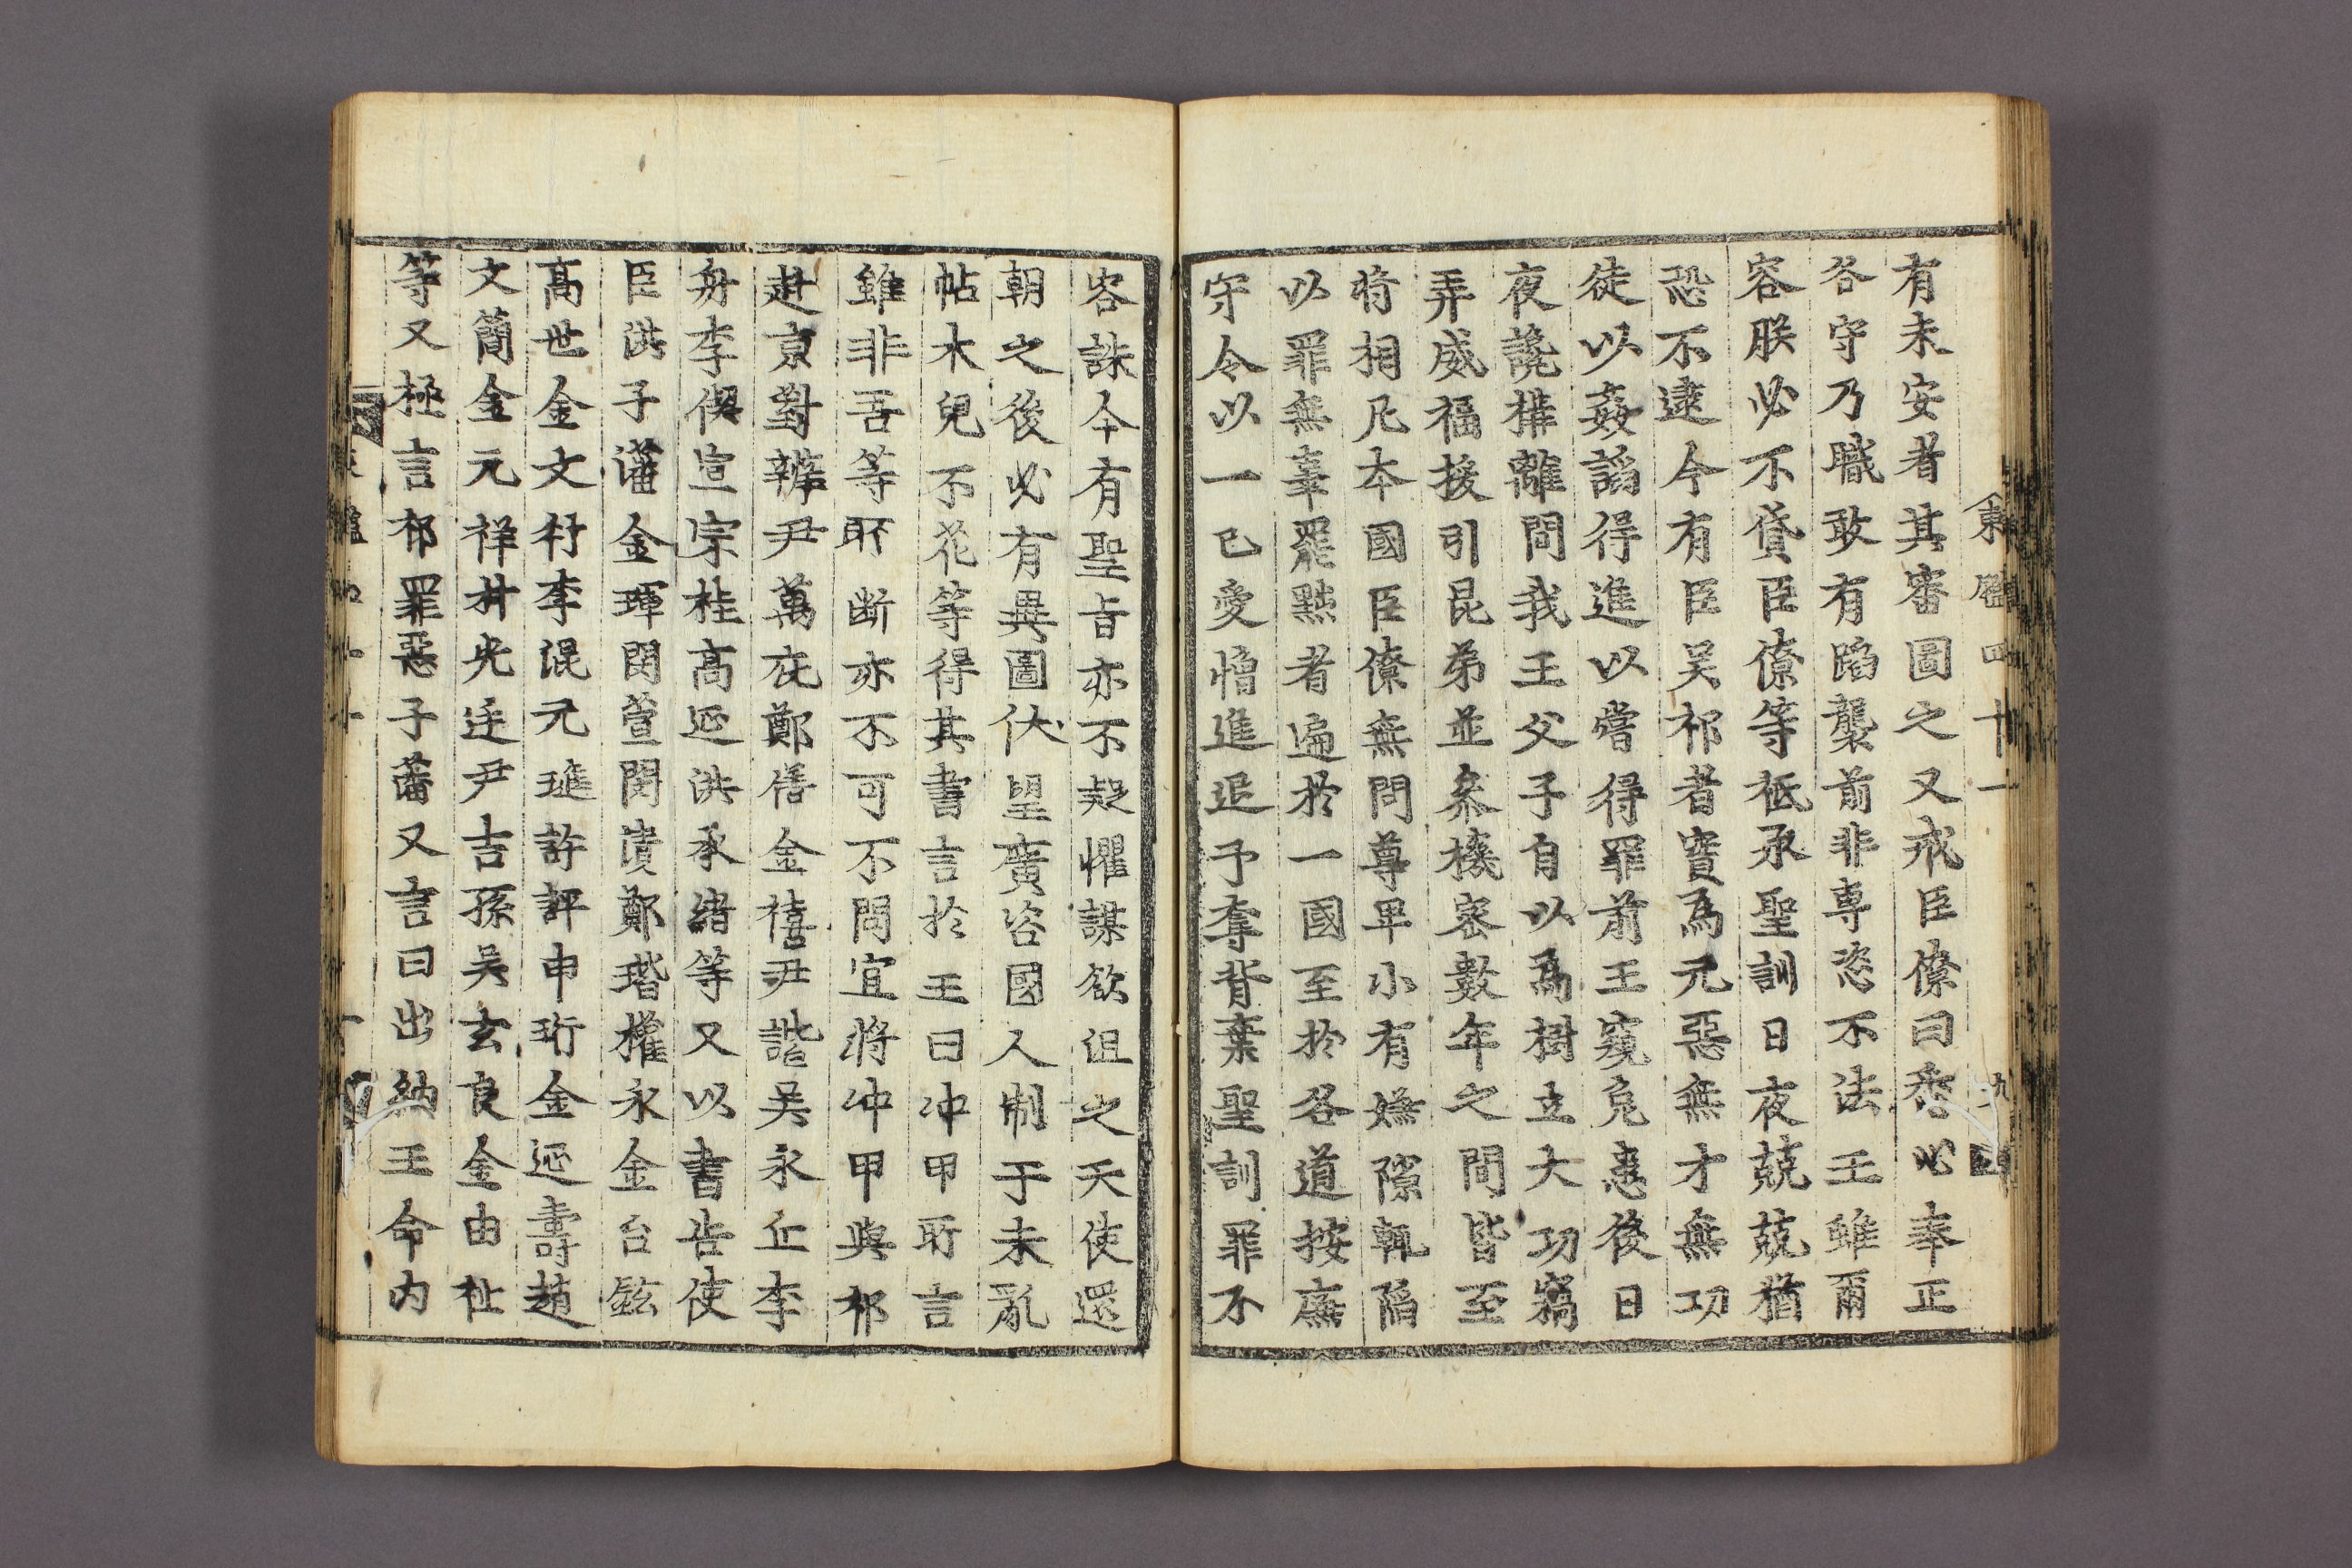 東鑑四十一
九
有未安者其審圖之又戒臣僚曰悉必奉正
各守乃職敢有蹈襲前非專恣不法王雖爾
容朕必不貸臣僚等祗承聖訓日夜兢兢猶
恐不逮今有臣吴祁者實爲元惡無才無功
徒以姦謟得進以嘗得罪前王窺免患後日
夜讒搆離間我王父子自以爲樹立大功竊
弄威福援引昆弟並叅機密數年之間皆至
將相凡本國臣僚無問尊卑小有嫌隙輒陷
以罪無辜罷黜者遍於一國至於各道按廉
守令以一己愛憎進退予奪背棄聖訓罪不
容誅今有聖旨亦不疑懼謀欲沮之天使還
朝之後必有異圖伏望廣咨國人制于未亂
帖木兒不花等得其書言於王曰冲甲所言
雖非吾等所断亦不可不問宜將冲甲與祁
赴京對辨尹萬庇鄭僐金禧尹諧吴永丘李
舟李偰宣宗桂高延洪承緒等又以書告使
臣洪子藩金琿閔萱閔漬鄭瑎權永金台鉉
高世金文衍李混元瓘許評申珩金延壽趙
文簡金元祥井光廷尹吉孫吴玄良金由祉
等又極言祁罪惡子藩又言曰出納王命内